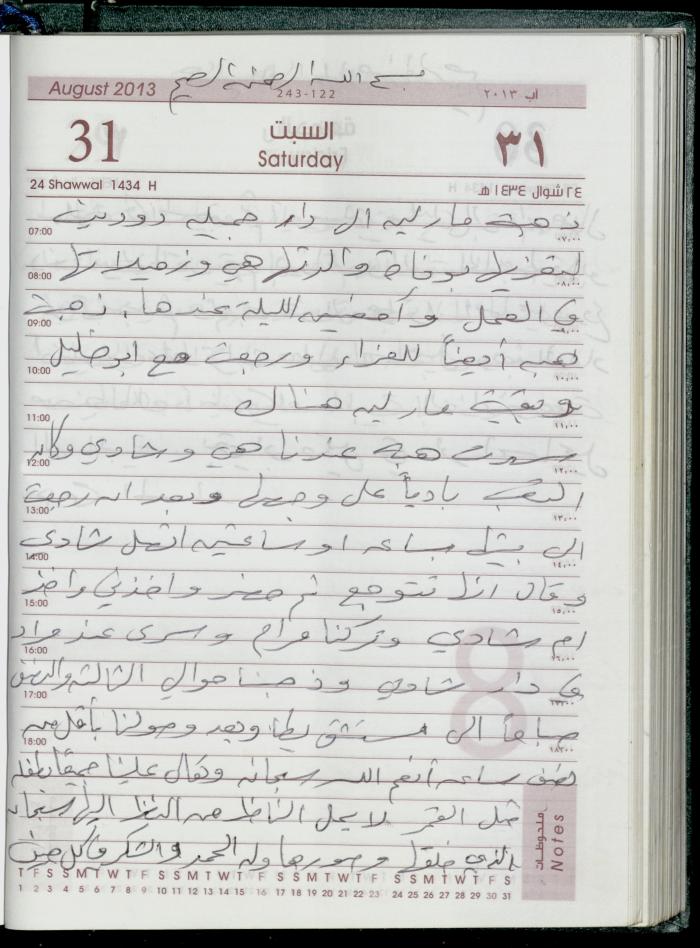 بسم الله الرحمن الرحيم
August 2013
243-122
آب ٢٠١٣
31
السبت
Saturday
٣١
24 Shawwal 1434 H
٢٤ شوال ١٤٣٤ هـ
ذهبت مارليه الى دار جميله
07:00
٠٧,٠٠
لتعزيها بوفاة والدتها هي وزميلاتها
08:00
٠٨,٠٠
في العمل وأمضيت الليلة عندها. ذهبت
09:00
٠٩,٠٠
هبه أيضاً للعزاء ورجعت مع ابو خليل
10:00
١٠,٠٠
وبقيت مارليه هناك
11:00
١١,٠٠
سهرت هبه عندنا هي وشادي وكان
12:00
١٢,٠٠
التعب بادياً على وجهها وبعد ان رجعت
13:00
١٣,٠٠
الى بيتها بساعه او ساعتين اتصل شادي
14:00
١٤,٠٠
وقال انها تتوجع ثم حضر واخذني واخذ
15:00
١٥,٠٠
ام شادي وتركنا مرام ويسرى عند مراد
16:00
١٦,٠٠
في دار شادي وذهبنا حوالي الثالثة والنصف
17:00
١٧,٠٠
صباحاً الى مستشفى وبعد وصولنا بأقل من
18:00
١٨,٠٠
نصف ساعه أنعم الله سبحانه وتعالى علينا جميعاً بطفله
مثل القمر لا يمل الناظر من النظر اليها سبحان
الذي خلقها وصورها وله الحمد والشكر في كل حين
ملحوظات
Notes
T F S S M T W T F S S M T W T F S S M T W T F S S M T W T F S
1 2 3 4 5 6 7 8 9 10 11 12 13 14 15 16 17 18 19 20 21 22 23 24 25 26 27 28 29 30 31
8